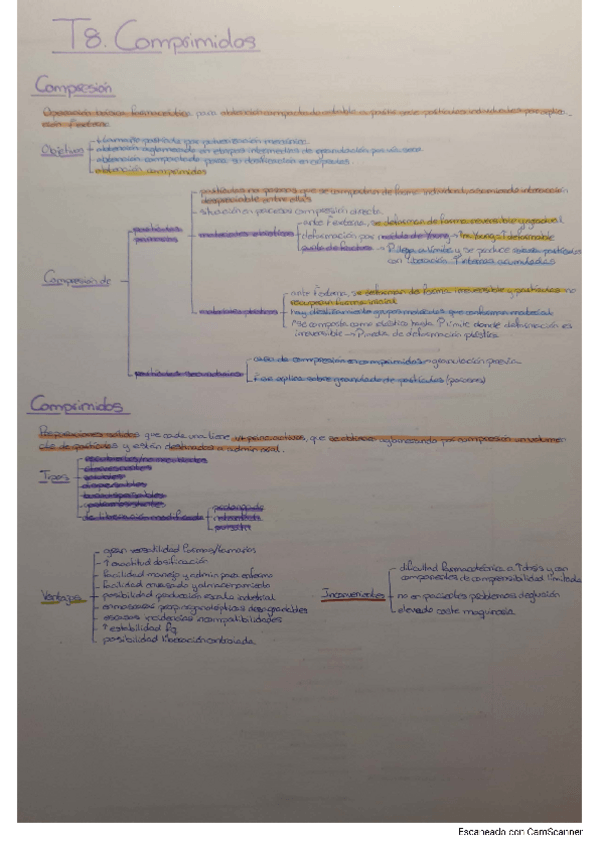 T8. Comprimidos
Compresión
Operación básica farmacéutica para obtención compacto de sólido a partir de partículas individuales por aplica-
ción F externa.
Objetivo
obtención aglomerado en etapas intermedias de granulación por vía seca
obtención compactado para su dosificación en cápsulas.
obtención comprimidos
Compresión de
partículas
primarias
partículas no porosas que se comportan de forma individual, asumiendo interacción
despreciable entre ellas
situación en procesos compresión directa
materiales elásticos
ante F externa, se deforman de forma reversible y gradual
deformación por módulo de Young → ↑m. Young, ↑ deformable
P llega a límite y se produce partículas
con liberación F internas acumuladas
materiales plásticos
ante F externa, se deforman de forma irreversible y partículas no
recuperan forma inicial
hay deslizamiento grupos moléculas que conforma material
*se comporta como elástico hasta P límite donde deformación es
irreversible → P media de deformación plástica
partículas secundarias
caso de compresión en comprimidos → granulación previa
F se aplica sobre granulado de partículas (porosas)
Comprimidos
Preparaciones sólidas que cada una tiene un princ. activos, que se obtienen aglomerando por compresión un volumen
cte de partículas y están destinados a admin oral.
Tipos
efervescentes
solubles
dispersables
bucodispersables
gastrorresistentes
de liberación modificada
prolongada
retardada
Ventajas
gran versatilidad formas/tamaños
↑ exactitud dosificación
facilidad manejo y admin para enfermo
facilidad envasado y almacenamiento
posibilidad producción escala industrial
enmascarar prop. organolépticas desagradables
escasas incidencias incompatibilidades
↑ estabilidad fq
posibilidad liberación controlada
Inconvenientes
dificultad farmacotécnica a ↑ dosis y con
componentes de compresibilidad limitada
no en pacientes problemas deglución
elevado coste maquinaria
Escaneado con CamScanner